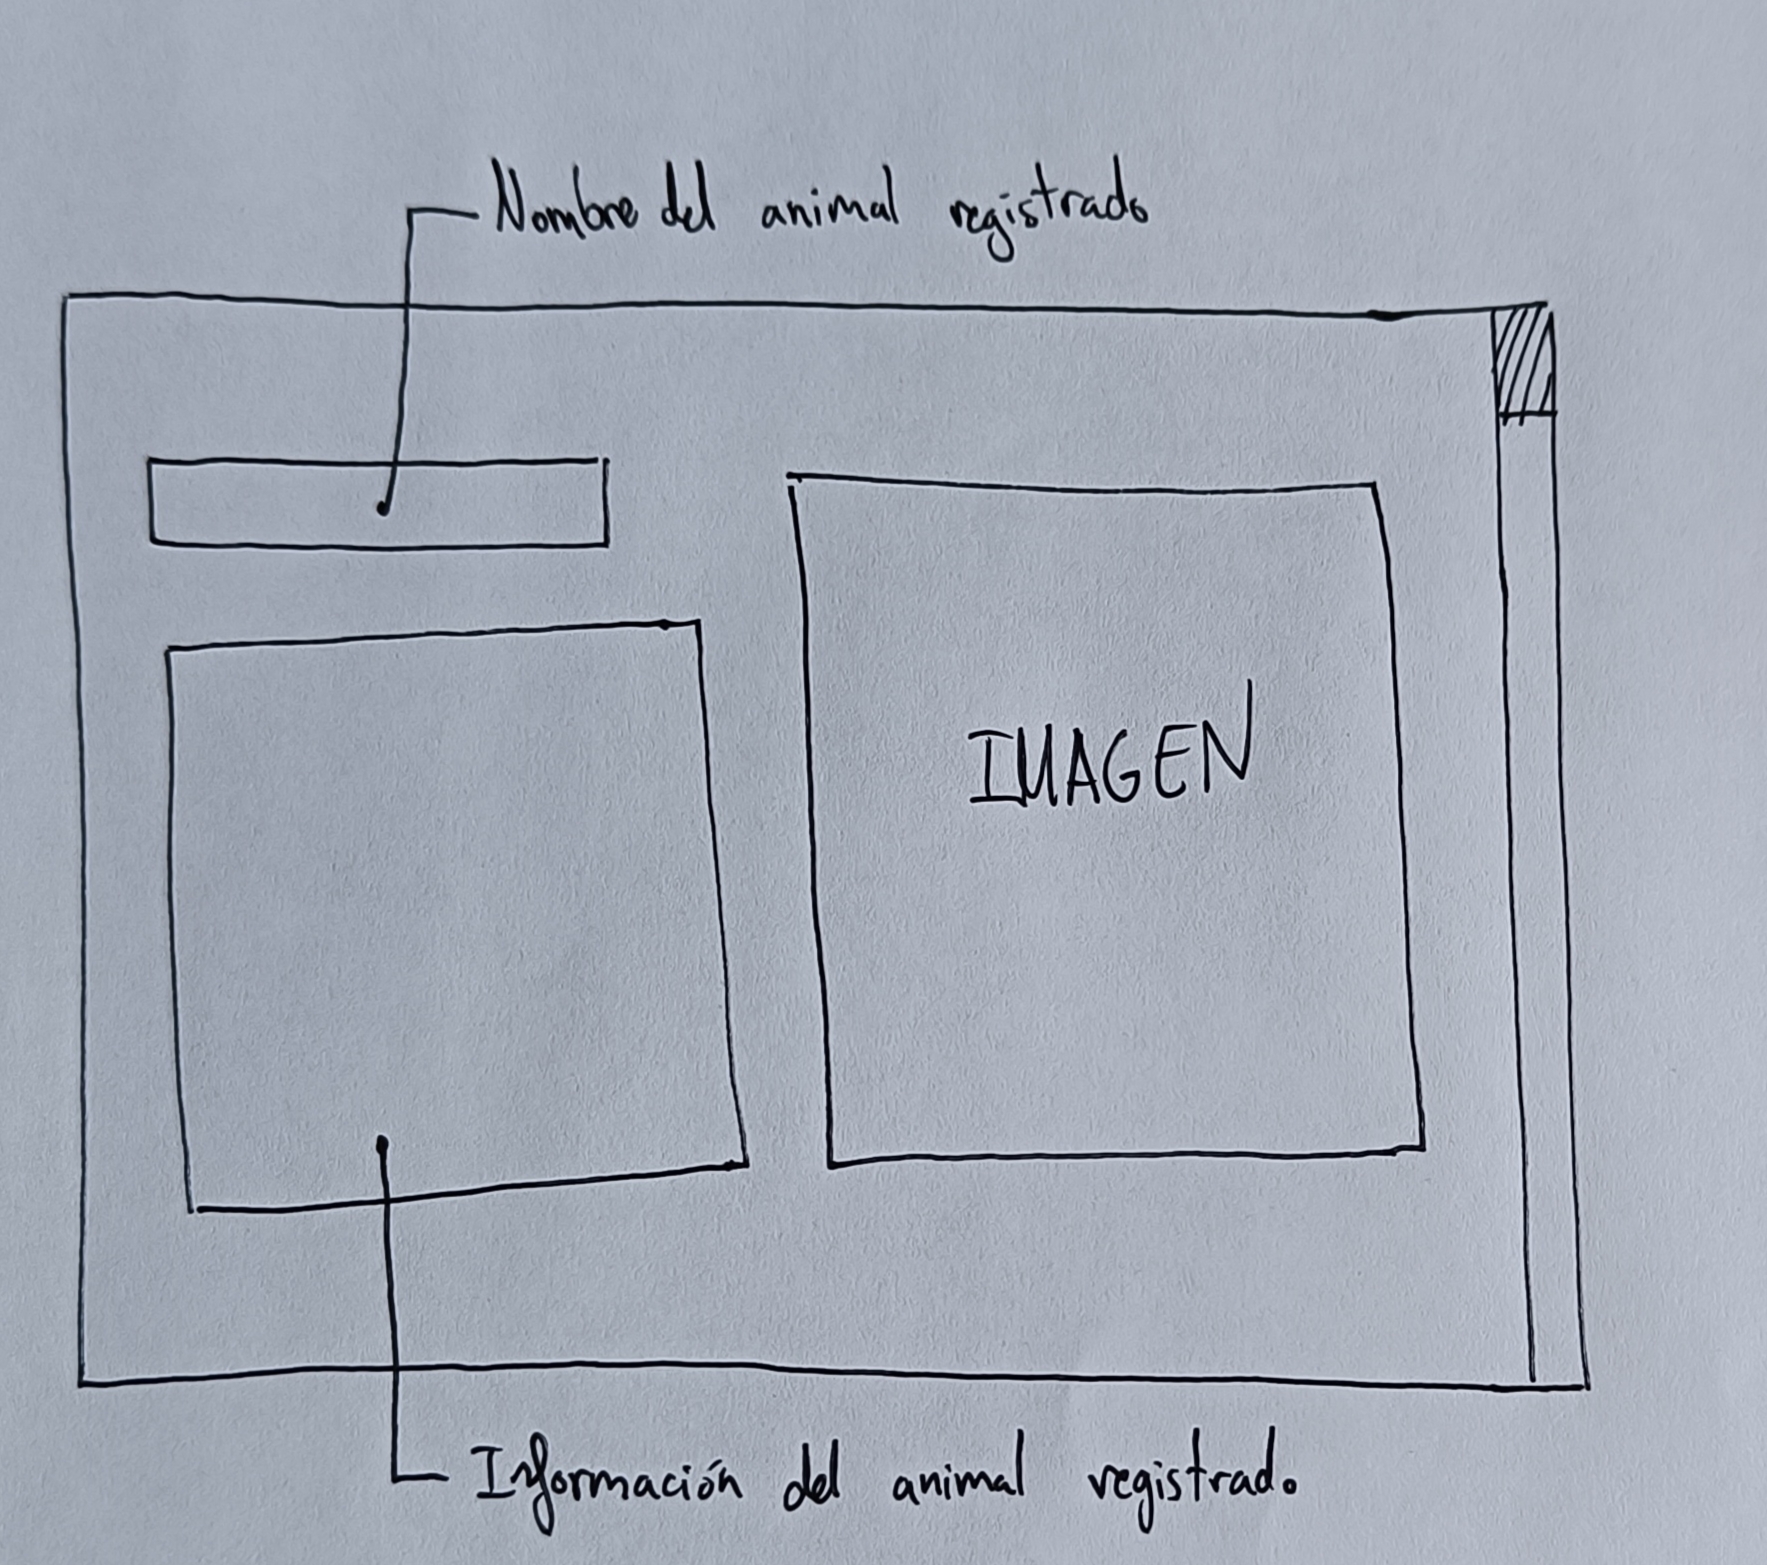 Nombre del animal registrado
IMAGEN
Información del animal registrado